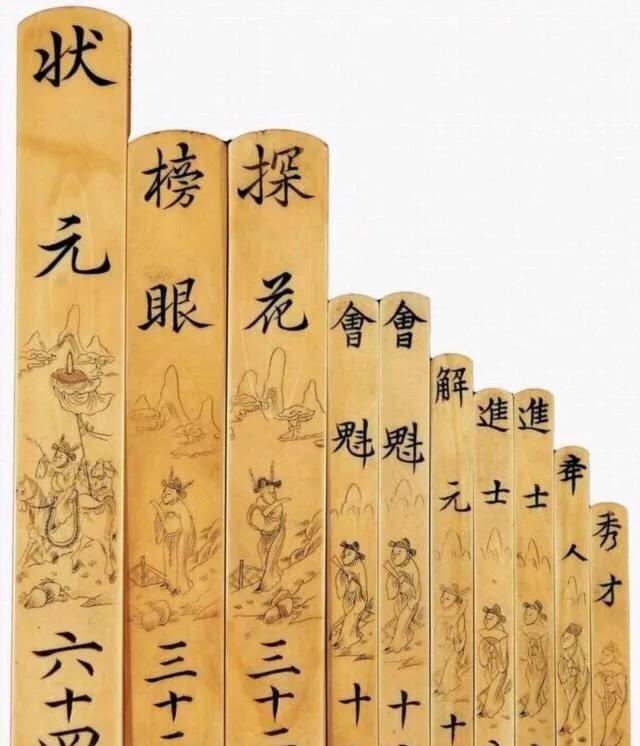 状元
六十四
榜眼
三十二
探花
三十二
會魁
十
會魁
十
解元
十
進士
進士
举人
秀才